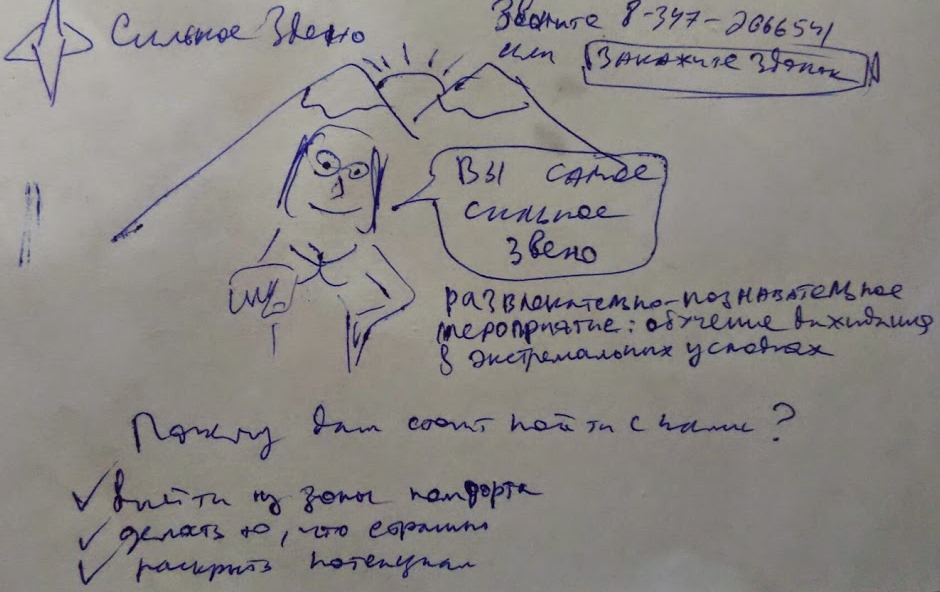 Сильное Звено
Звоните 8-347-2666541
или Закажите Звонок
ВЫ самое
сильное
Звено
развлекательно-познавательное
мероприятие: обучение выживания
в экстремальных условиях
Почему вам стоит пойти с нами?
выйти из зоны комфорта
делать то, что страшно
раскрыть потенциал